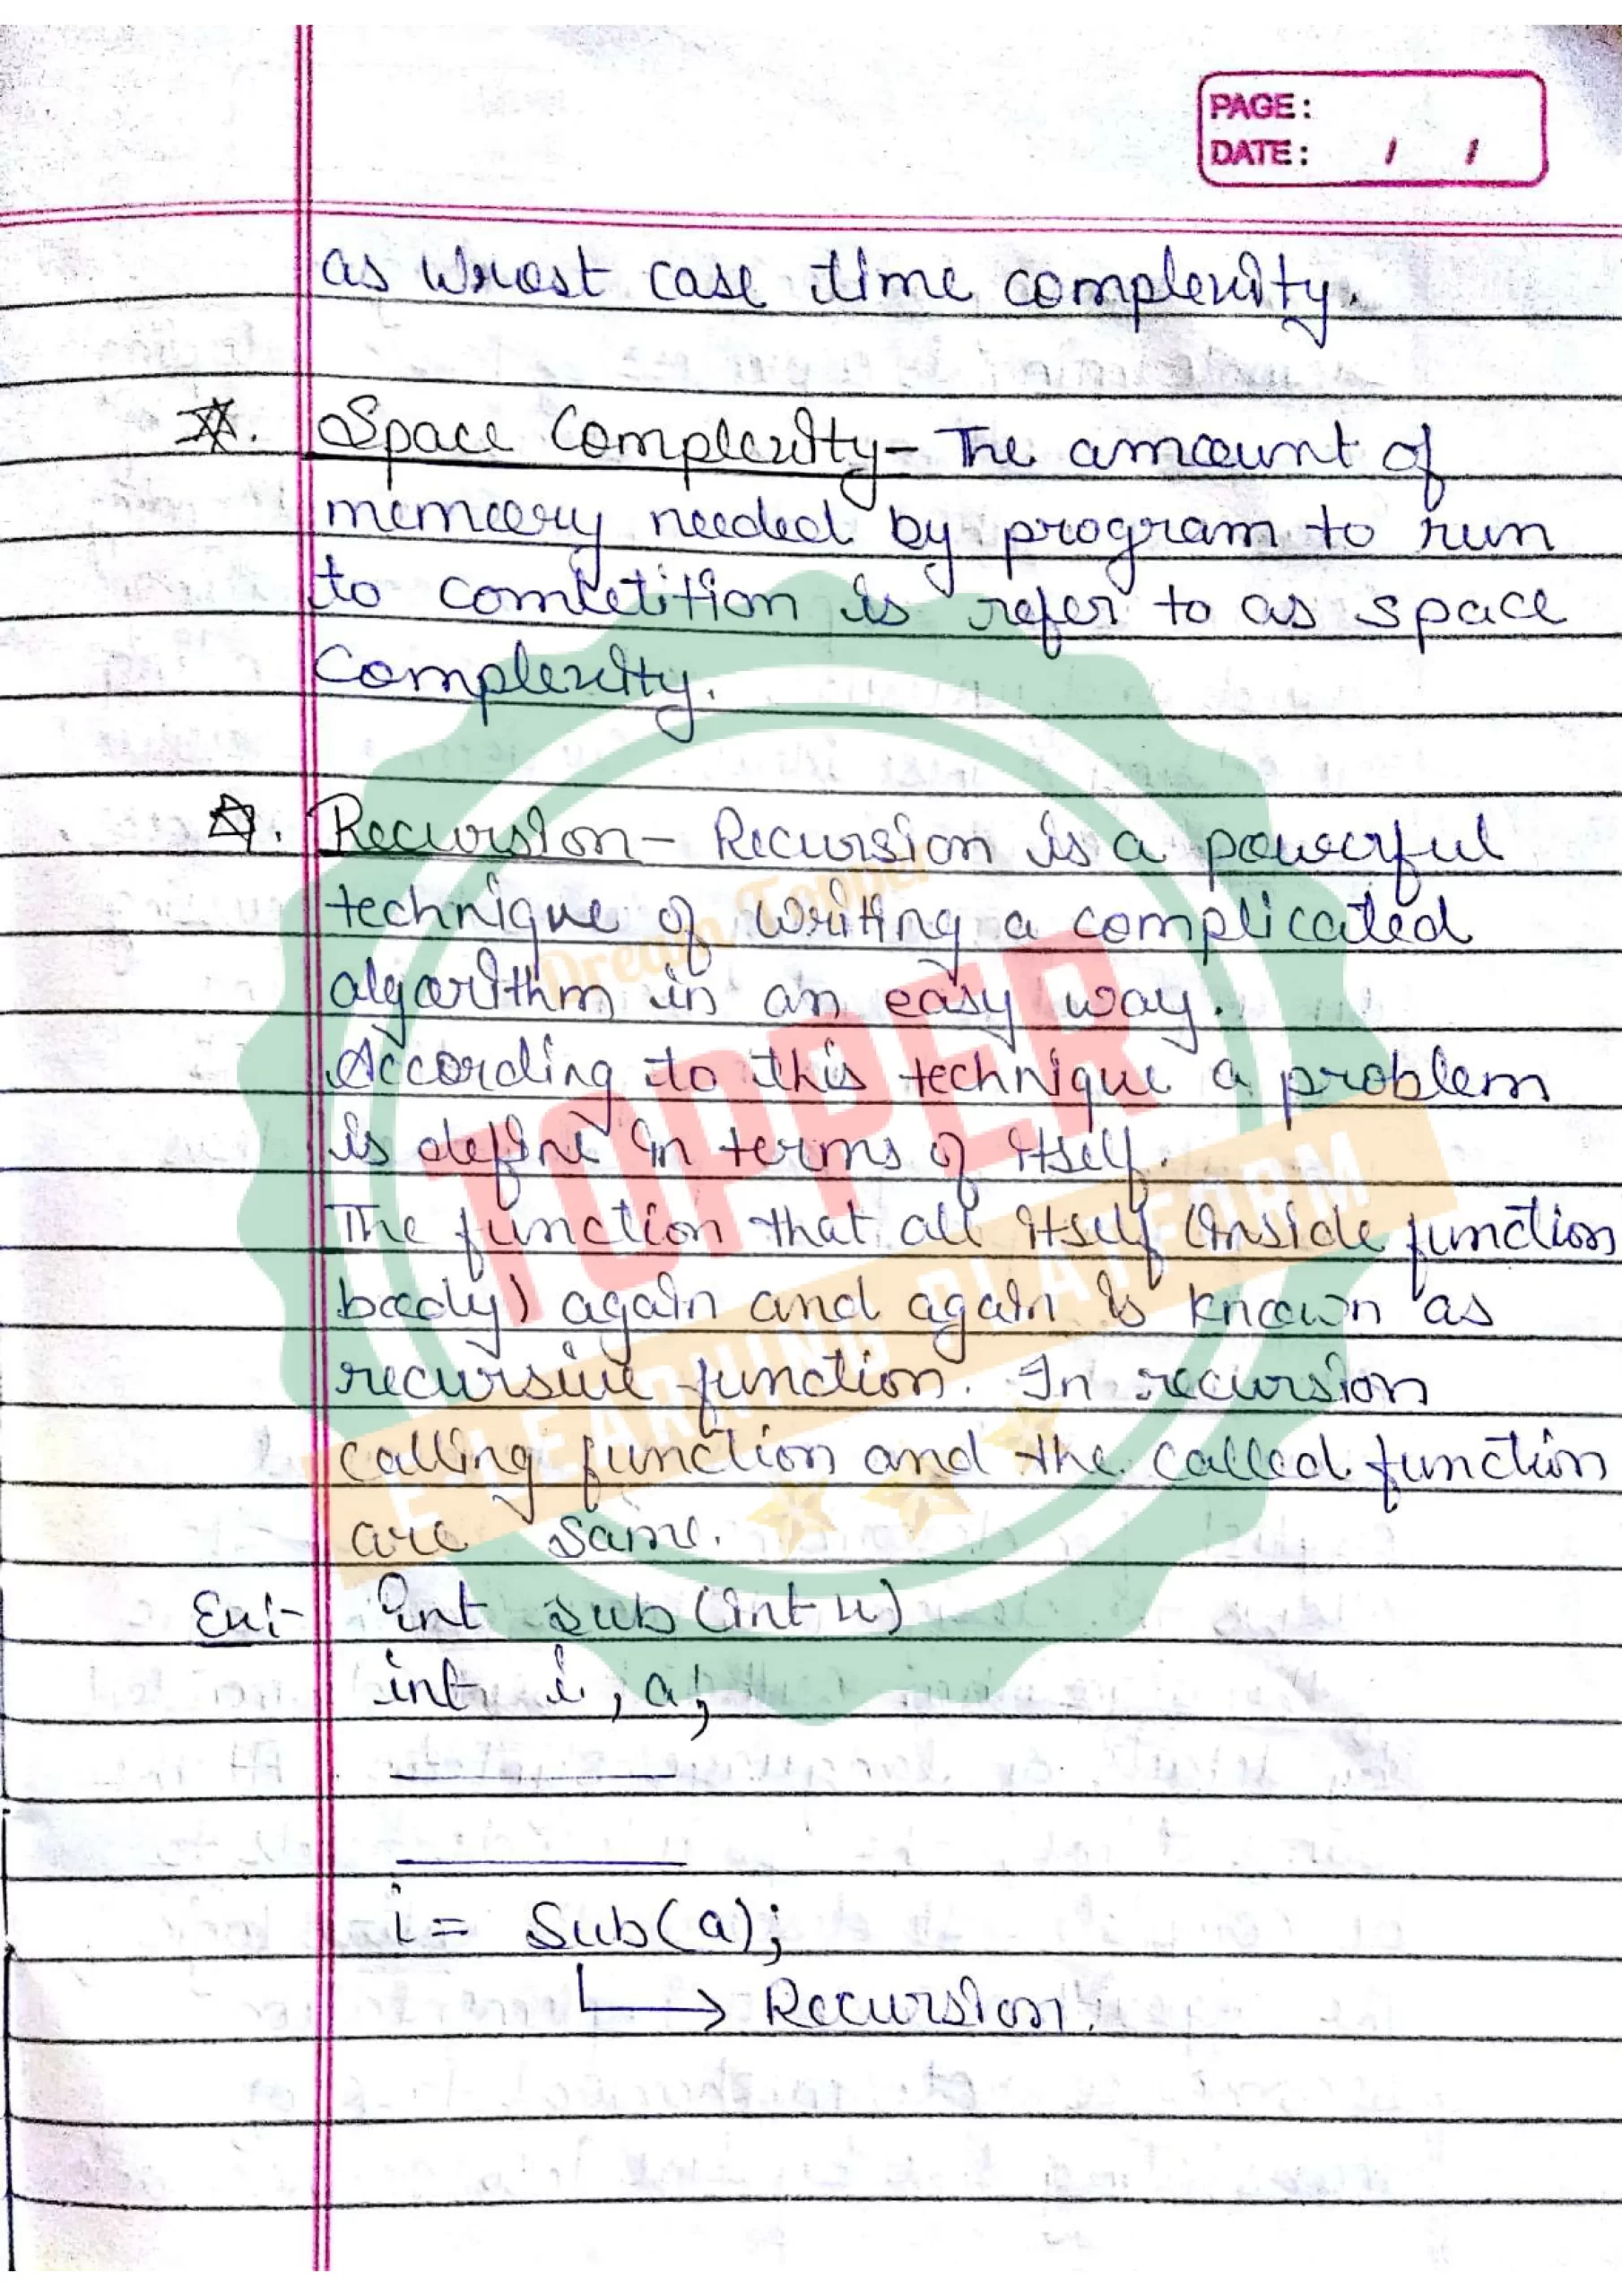 PAGE:
DATE: / /
as wrost case time complexity.
Space Complexity - The amount of
memory needed by program to run
to comtetition is refer to as space
Complexity.
Recursion - Recursion is a powerful
technique of writing a complicated
algorithm in an easy way.
According to this technique a problem
is define in terms of itself.
The function that all itself (inside function
body) again and again is known as
recursive function. In recursion
calling function and the called function
are same.
Ex:- int sub(int x)
int i, a;
i = Sub(a);
→ Recursion.
Dream Topper
TOPPER
E-LEARNING PLATFORM